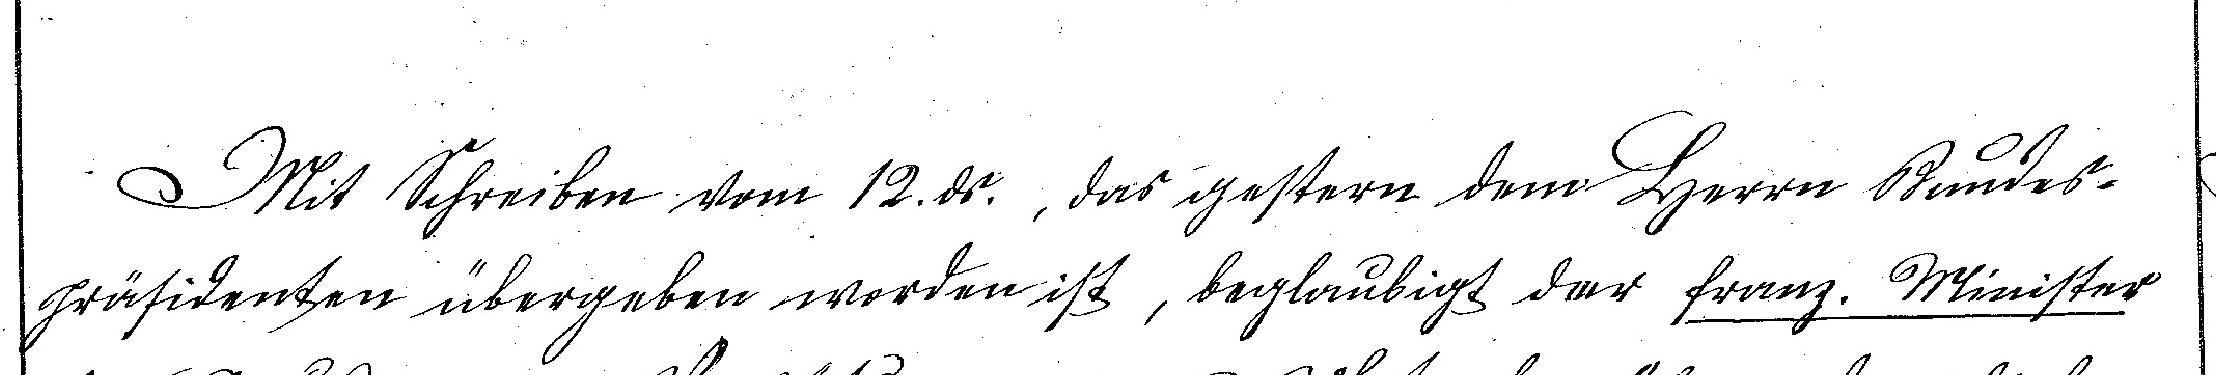 Mit Schreiben vom 12. ds., das gestern dem Herrn Bundes-
präsidenten übergeben worden ist, beglaubigt der franz. Minister